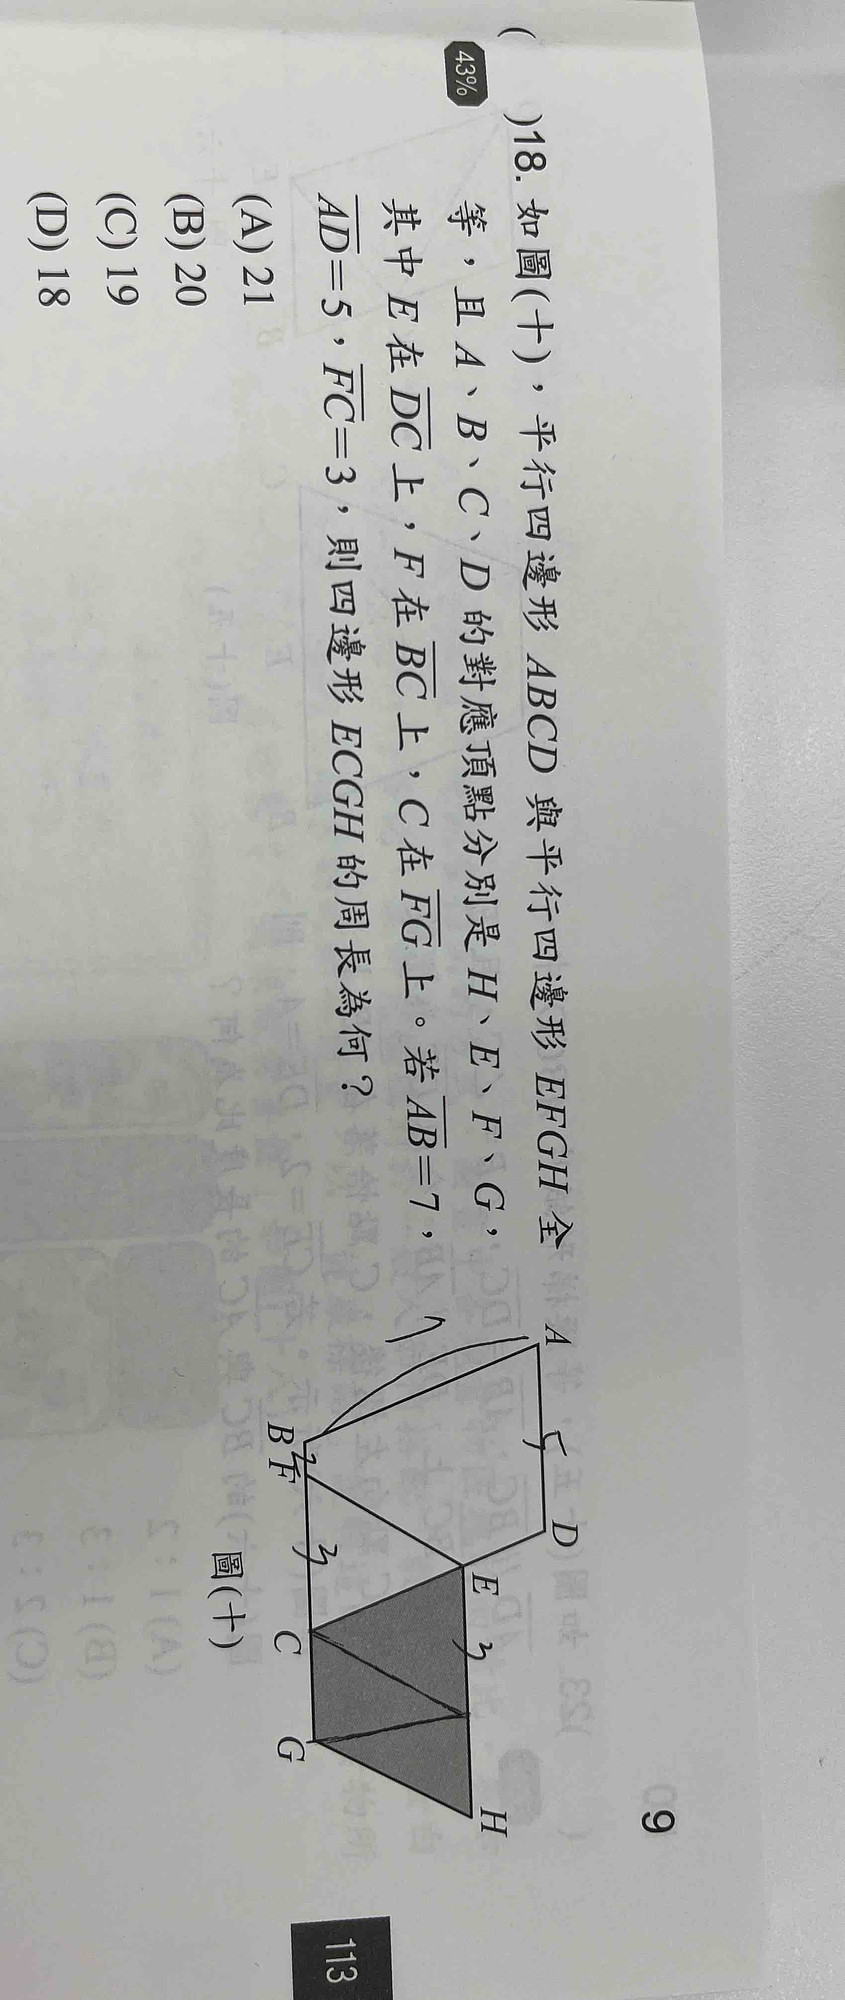 ( )18. 如圖(十)，平行四邊形 ABCD 與平行四邊形 EFGH 全
43%
等，且 A、B、C、D 的對應頂點分別是 H、E、F、G，
其中 E 在 DC 上，F 在 BC 上，C 在 FG 上。若 AB=7，
AD=5，FC=3，則四邊形 ECGH 的周長為何？
(A) 21
(B) 20
(C) 19
(D) 18
A
5
D
7
E
3
H
B
2
F
3
C
G
圖(十)
9
113